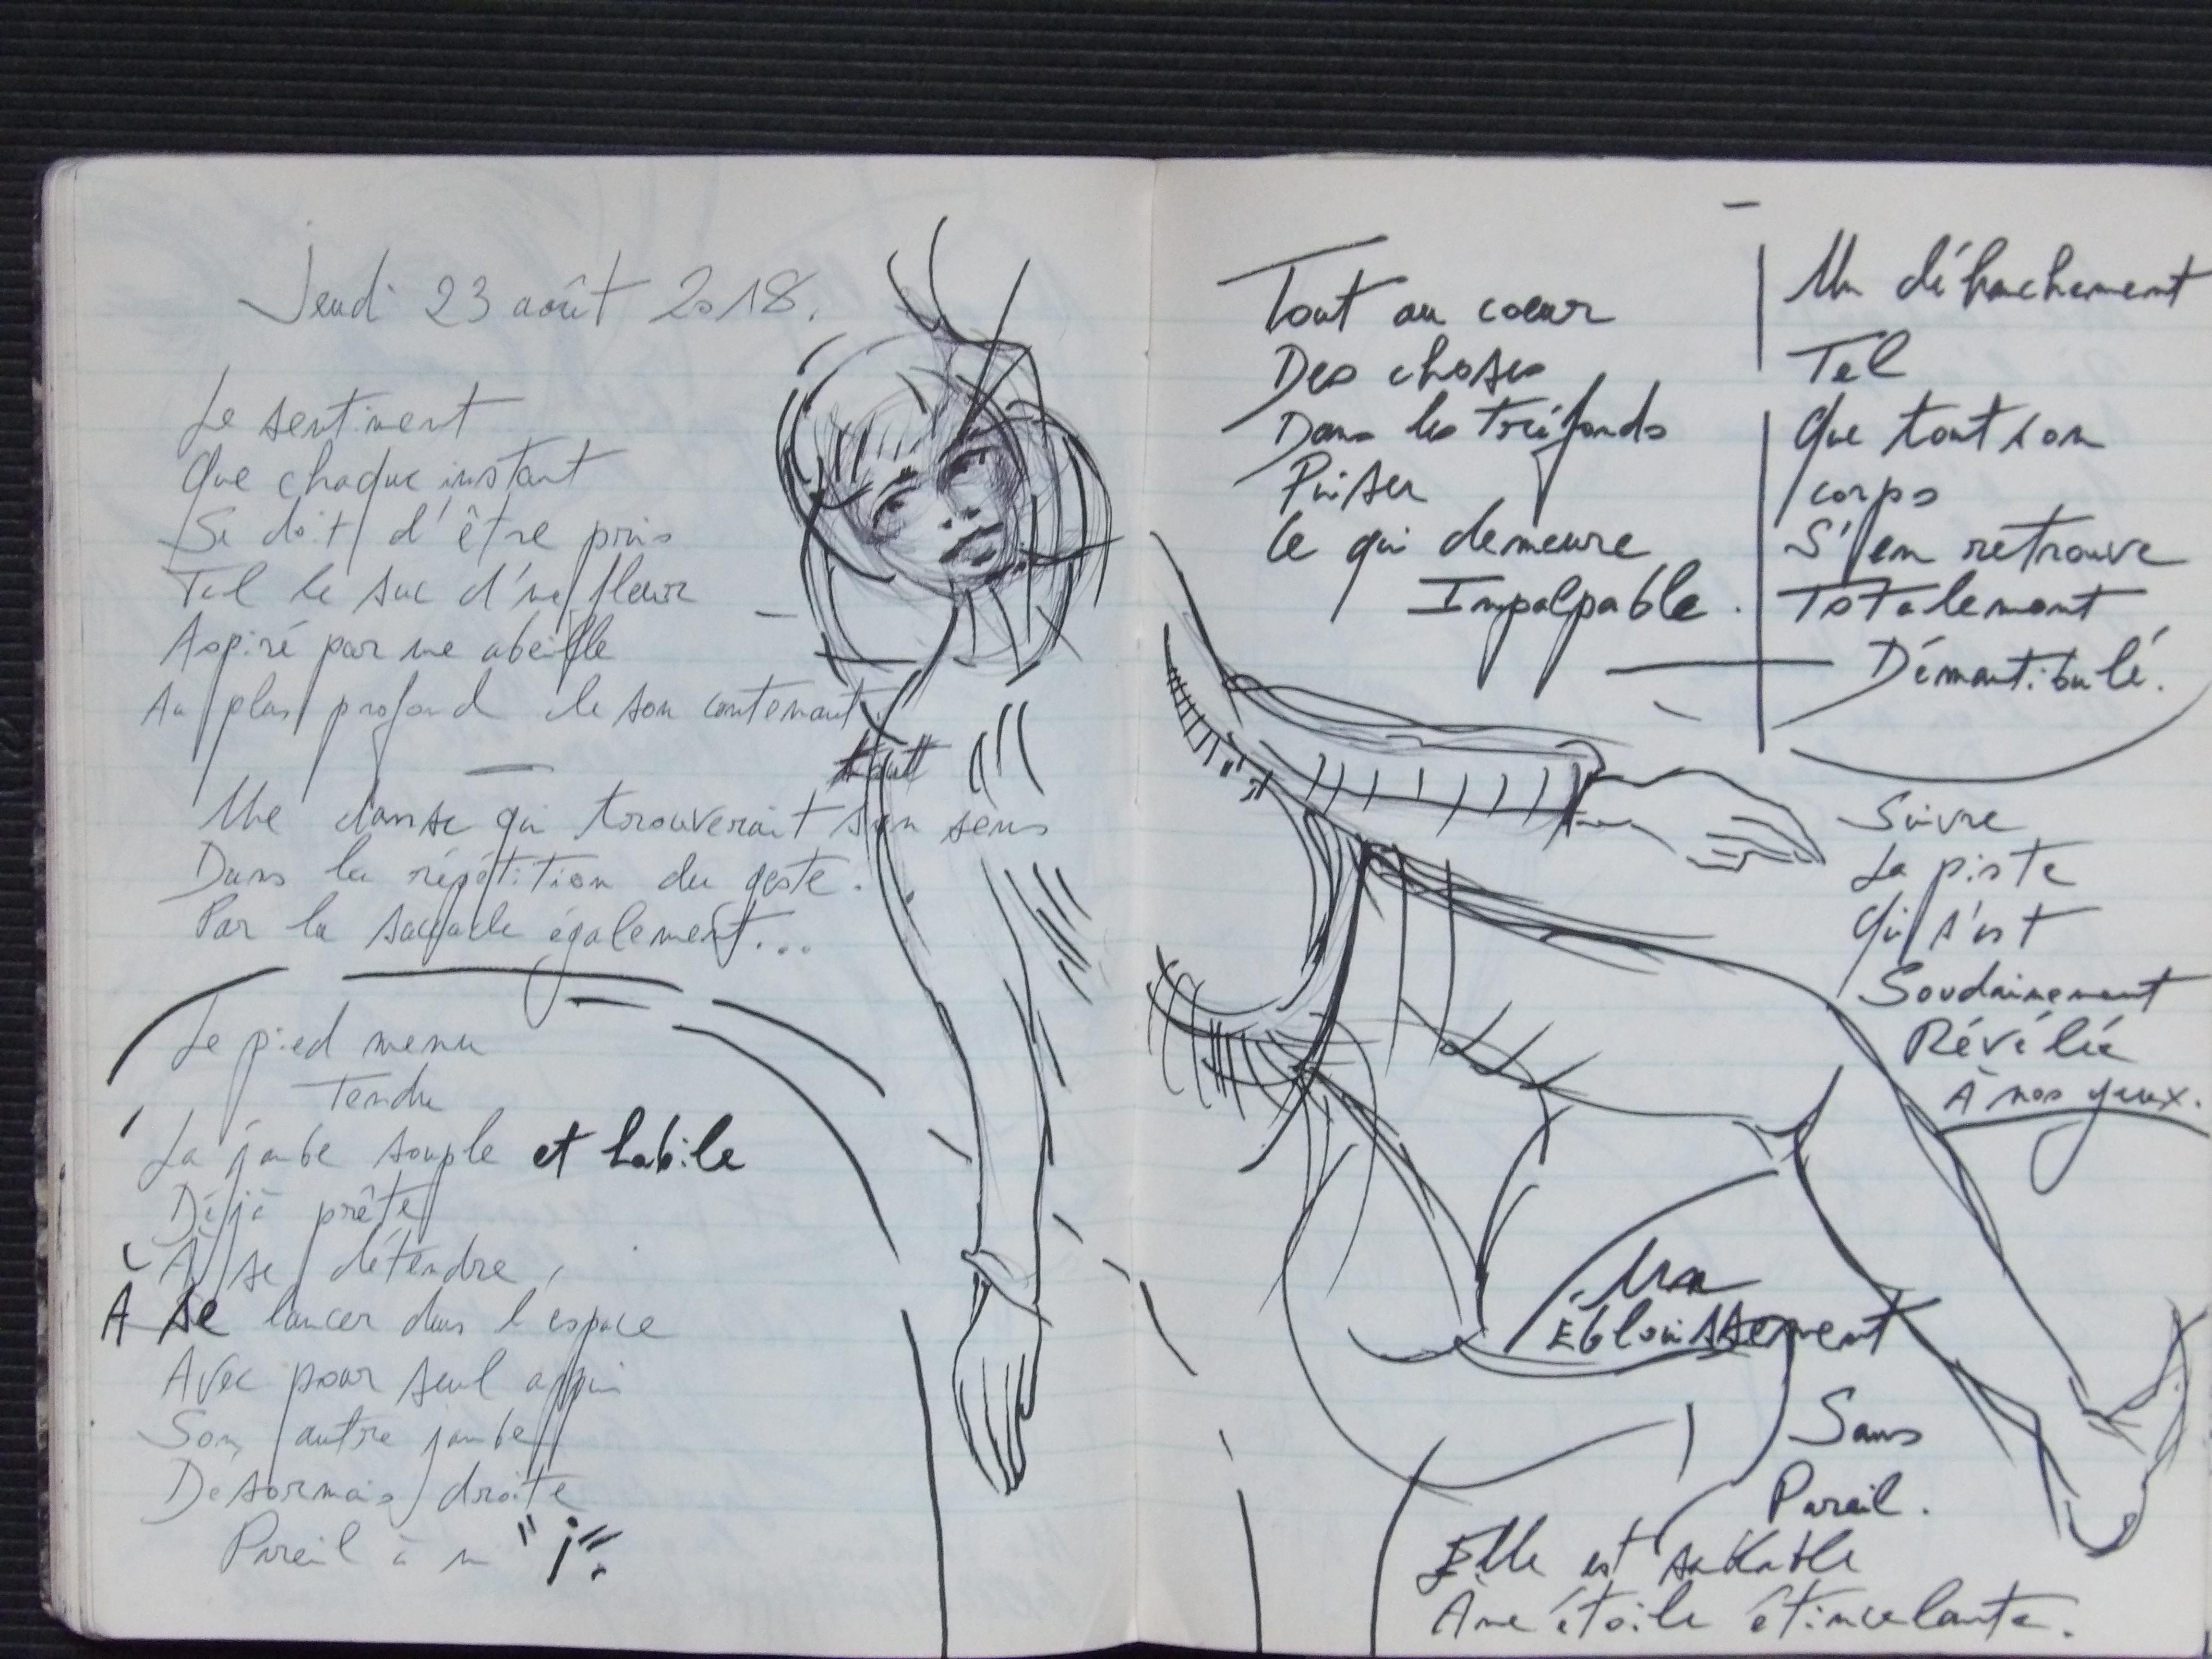 Jeudi 23 août 2018.
Le sentiment
Que chaque instant
Se doit d'être pris
Tel le suc d'une fleur
Aspiré par une abeille
Au plus profond de son contenant.
Une danse qui trouverait son sens
Dans la répétition du geste.
Par la saccade également...
Le pied menu
Tendu
La jambe souple et habile
Déjà prête
À se détendre,
À se lancer dans l'espace
Avec pour seul appui
Son autre jambe
Désormais droite
Pareil à un "i".
Tout au coeur
Des choses
Dans les tréfonds
Puiser
Ce qui demeure
Impalpable.
Un déhanchement
Tel
Que tout son
corps
S'en retrouve
Totalement
Démantibulé.
Suivre
La piste
Qui s'est
Soudainement
Révélée
À nos yeux.
Un
Éblouissement
Sans
Pareil.
Elle est semblable
À une étoile étincelante.